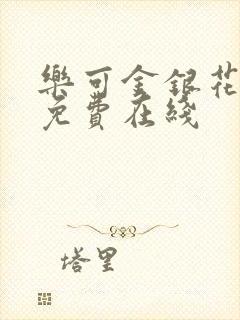 樂可金銀花
免費在綫
塔里